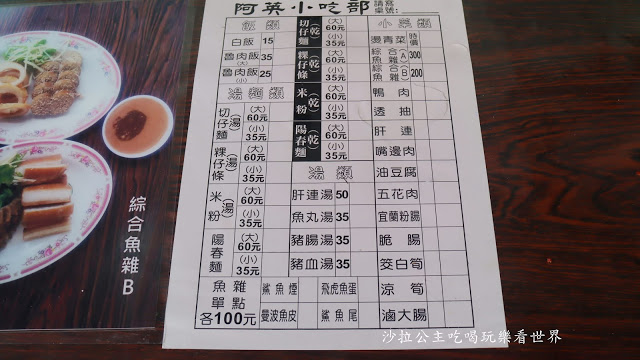 阿英小吃部
請寫
桌號:
飯類
白飯 15
魯肉飯(大) 35
魯肉飯(小) 25
湯麵類
切仔麵(湯) (大)60元
(小)35元
粿仔條(湯) (大)60元
(小)35元
米粉(湯) (大)60元
(小)35元
陽春麵 (大)60元
(小)35元
魚雜單點各100元
鯊魚煙
飛虎魚蛋
曼波魚皮
鯊魚尾
切仔麵(乾) (大)60元
(小)35元
粿仔條(乾) (大)60元
(小)35元
米粉(乾) (大)60元
(小)35元
陽春麵(乾) (大)60元
(小)35元
湯類
肝連湯 50
魚丸湯 35
豬腸湯 35
豬血湯 35
小菜類
燙青菜 時價
綜合魚雜(A) 300
綜合魚雜(B) 200
鴨肉
透抽
肝連
嘴邊肉
油豆腐
五花肉
宜蘭粉腸
脆腸
筊白筍
涼筍
滷大腸
綜合魚雜B
沙拉公主吃喝玩樂看世界